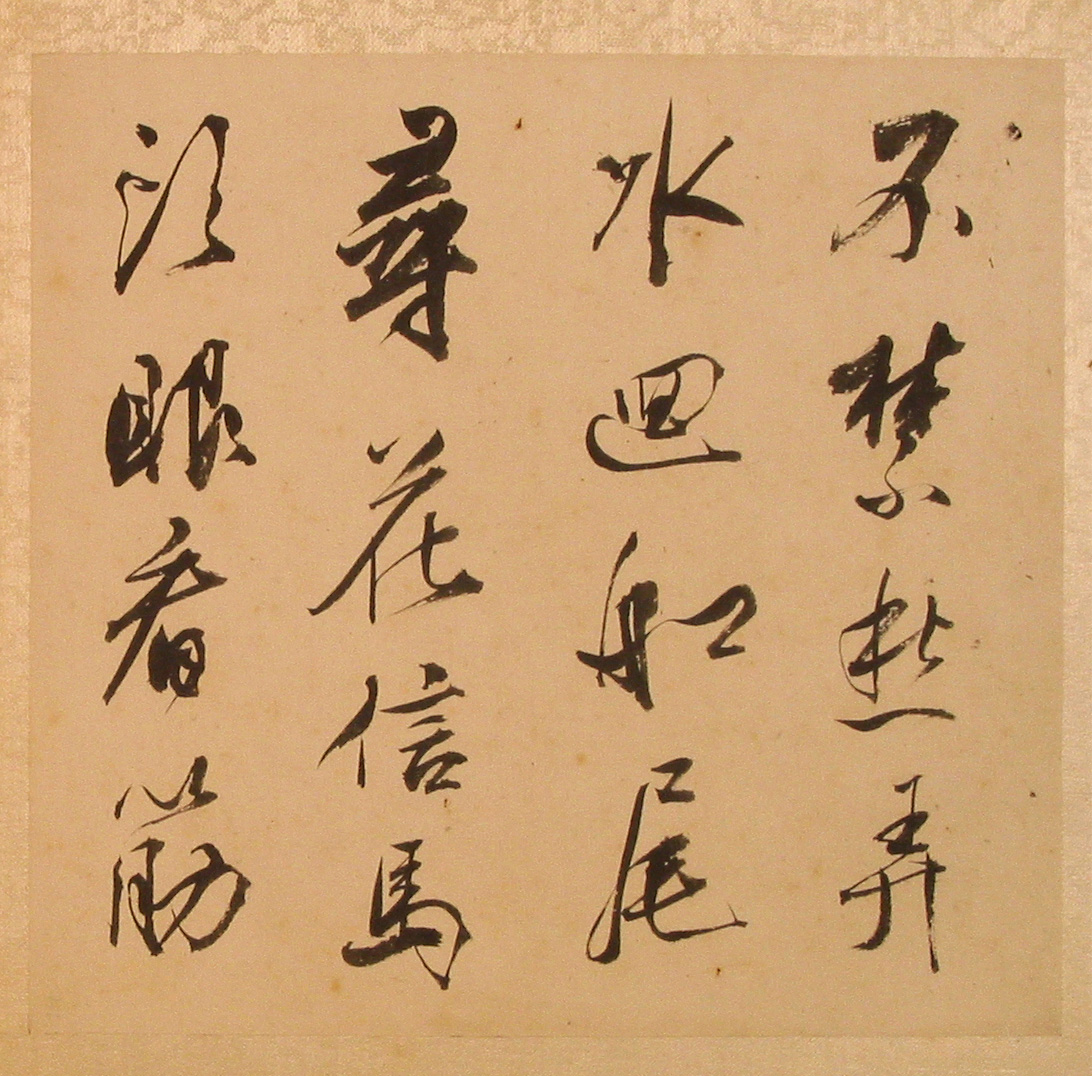 不禁愁弄
水迴舡尾
尋花信馬
頭眼看筋